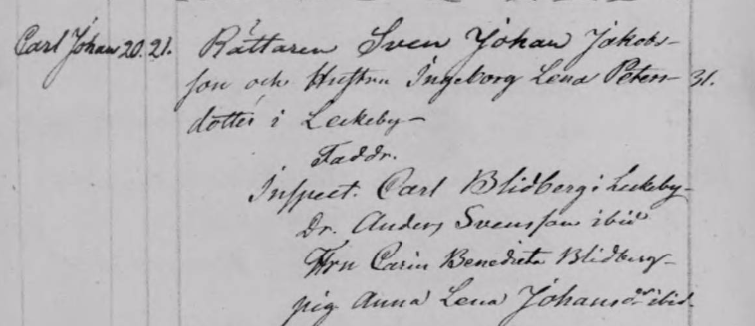 Carl Johan 20. 21. Rättaren Sven Johan Jakobs-
son och Hustru Ingeborg Lena Peters- 31.
dotter i Leckeby-
Faddr.
Inspect. Carl Blidberg i Leckeby-
Dr. Anders Svensson ibid
Hru Carin Benedicta Blidberg-
pig Anna Lena Johansdr ibid.